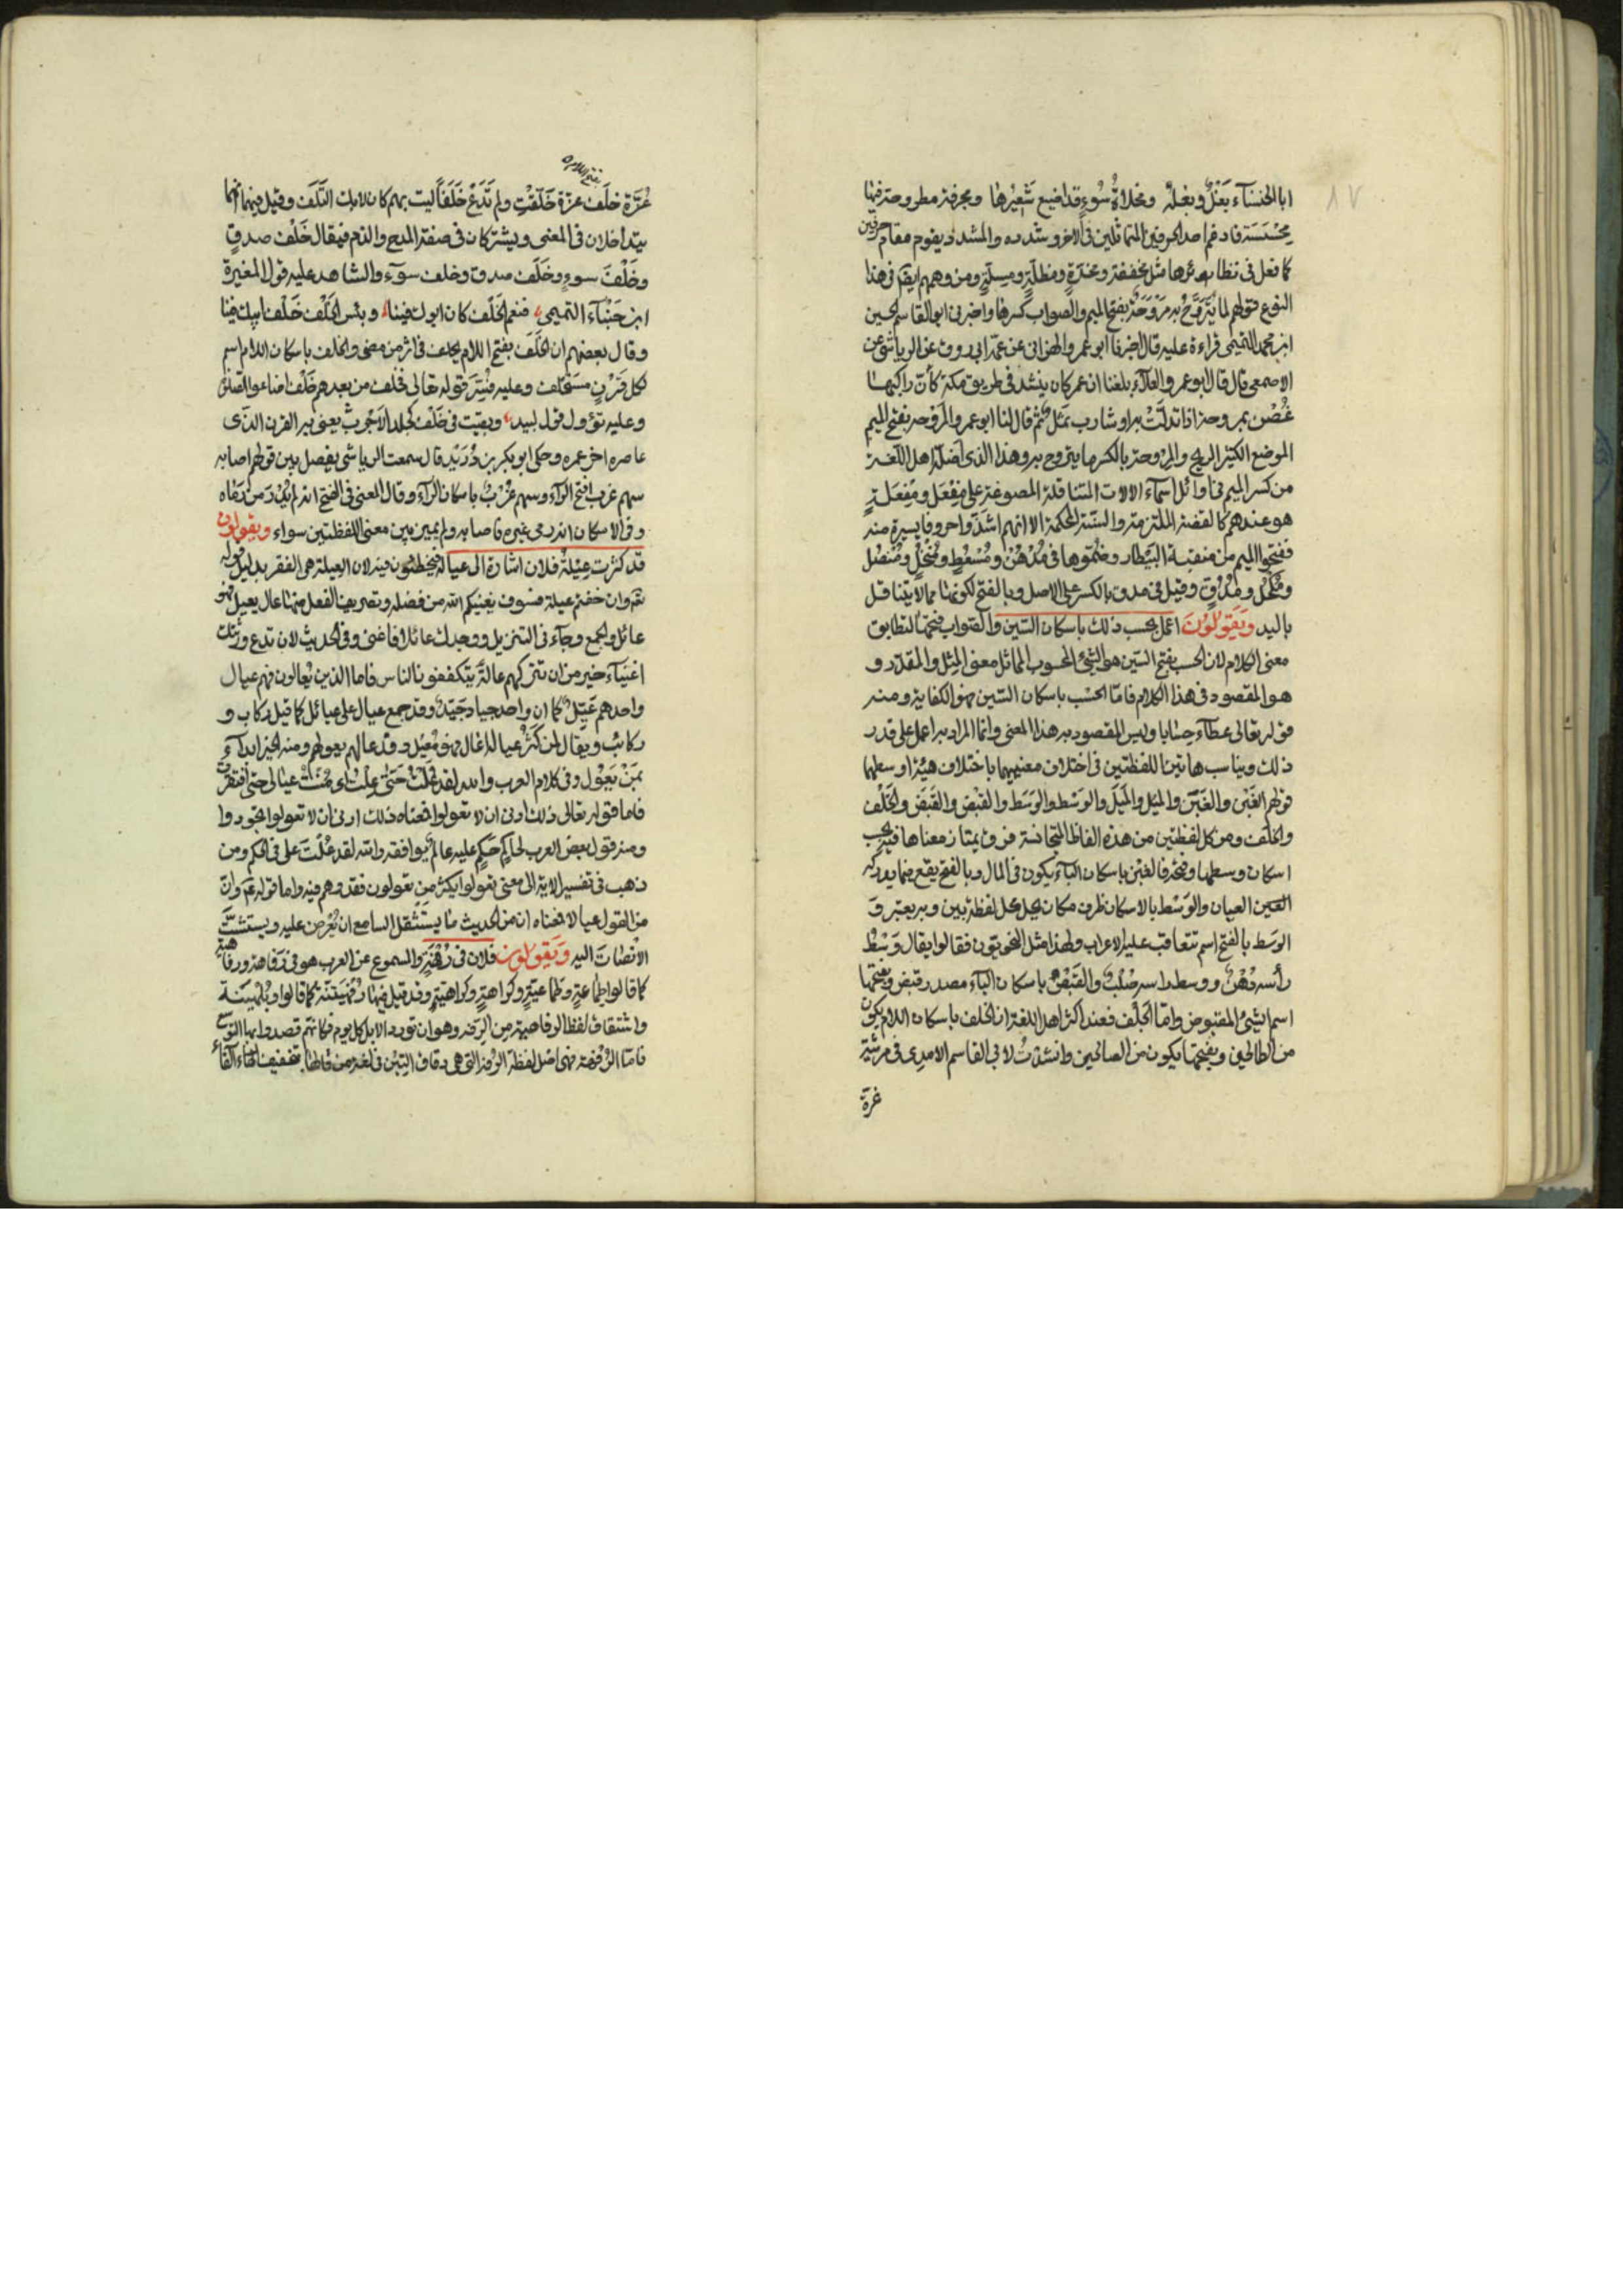 ١٧
ابا الخنساء بغل وبغلة ومخلاة سوء قد اضيع شعيرها ومجرفة مطروحة فيها
محسسة فادغم احد الحرفين المتماثلين في الاخر وشدده والمشدد يقوم مقام حرفين
كما فعل في نظائرها مثل مخففة ومخدة ومظلة ومسلة ومن وهمهم ايضا في هذا
النوع قولهم لما يتروح به مروحة بفتح الميم والصواب كسرها واخبرني ابو القاسم الحسين
ابن محمد التميمي قراءة عليه قال اخبرنا ابو عمر والهزاني عن عمه ابي روق عن الرياشي عن
الاصمعي قال قال ابو عمرو العلاء بلغنا ان عمر كان ينشد في طريق مكة كأن راكبها
غصن بمروحة اذا تدلت به او شارب ثمل ثم قال لنا ابو عمرو المروحة بفتح الميم
الموضع الكثير الريح والمروحة بالكسر ما يتروح به وهذا الذي اصله اهل اللغة
من كسر الميم في اوائل اسماء الالات المتناقلة المصوغة على مفعل ومفعلة
هو عندهم كالقضية الملتزمة والسنة المحكمة الا انهم اشذوا حروفا يسيرة منه
ففتحوا الميم من منقبة البيطار وضموها في مدهن ومسعط ومنخل ومنصل
ومكحل ومدق وقيل في مدق بالكسر على الاصل وبالفتح لكونها مما لا يتناقل
باليد ويقولون اعمل بحسب ذلك باسكان السين والصواب فتحها لتطابق
معنى الكلام لان الحسب بفتح السين هو الشئ المحسوب المماثل معنى المثل والمقدر و
هو المقصود في هذا الكلام فاما الحسب باسكان السين فهو الكفاية ومنه
قوله تعالى عطاء حسابا وليس المقصود به هذا المعنى وانما المراد به اعمل على قدر
ذلك ويناسب هاتين اللفظتين في اختلاف معنييهما باختلاف هيئة اوسطهما
قولهم الغبن والغبن والميل والميل والوسط والوسط والقبض والقبض والخلف
والخلف وبين كل لفظتين من هذه الفاظ المتجانسة فرق يمتاز معناها فيه بحسب
اسكان وسطها وفتحه فالغبن باسكان الباء يكون في المال وبالفتح يقع فيما يدركه
العين العيان والوسط بالاسكان ظرف مكان يحل محل لفظة بين وبه يعتبر و
الوسط بالفتح اسم تتعاقب عليه الاعراب ولهذا مثل النحويون فقالوا يقال وسط
رأسه دهن ووسط راسه صلب والقبض باسكان الباء مصدر قبض وبفتحها
اسم الشئ المقبوض واما الخلف فعند اكثر اهل اللغة ان الخلف باسكان اللام يكون
من الطالحين وبفتحها يكون من الصالحين وانشدت لابي القاسم الامدي في مرثية
غرة
بفتح اللام
غرة خلف عزة خلفت ولم تدع خلفا ليت بهم كان لا بك التلف وقيل فيهما انهما
يتداخلان في المعنى ويشتركان في صفة المدح والذم فيقال خلف صدق
وخلف سوء وخلف صدق وخلف سوء والشاهد عليه قول المغيرة
ابن حبناء التميمي فنعم الخلف كان ابوك فينا وبئس الخلف خلف ابيك فينا
وقال بعضهم ان الخلف بفتح اللام يخلف في اثر من مضى والخلف باسكان اللام اسم
لكل قرن مستخلف وعليه فسر قوله تعالى فخلف من بعدهم خلف اضاعوا الصلوة
وعليه تؤول قول لبيد وبقيت في خلف كجلد الاجرب يعني به القرن الذي
عاصره اخر عمره وحكى ابو بكر بن دريد قال سمعت الرياشي يفصل بين قولهم اصابه
سهم غرب بفتح الراء وسهم غرب باسكان الراء وقال المعنى في الفتح انه لم يدر من رماه
وفي الاسكان انه رمى غيره فاصابه ولم يميز بين معنى اللفظتين سواء ويقولون
قد كثرت عيلة فلان اشارة الى عياله فيخطئون فيه لان العيلة هي الفقر بدليل قوله
تعالى وان خفتم عيلة فسوف يغنيكم الله من فضله وتصريف الفعل منها عال يعيل فهو
عائل والجمع وجاء في التنزيل ووجدك عائلا فاغنى وفي الحديث لان تدع ورثتك
اغنياء خير من ان تتركهم عالة يتكففون الناس فاما الذين يعالون فهم عيال
واحدهم عيل كما ان واحد جياد جيد وقد جمع عيال على عيائل كما قيل ركاب و
ركائب ويقال لمن كثر عياله اعال فهو معيل وقد عالهم يعولهم ومنه الخبر ابداء
بمن يعول وفي كلام العرب والله لقد علت حتى علت اي منت عيالي حتى افتقرت
فاما قوله تعالى ذلك ادنى ان لا تعولوا فمعناه ذلك ادنى ان لا تعولوا تجوروا
ومنه قول بعض العرب لحاكم حكم عليه بما لم يوافقه والله لقد علت علي في الحكم ومن
ذهب في تفسير الاية الى معنى تعولوا يكثر من تعولون فقد وهم فيه واما قوله عم وان
من القول عيالا فمعناه ان من الحديث ما يستثقل السامع ان يعرض عليه ويستشق
الانصات اليه ويقولون فلان في رفهة والمسموع عن العرب هو في رفاهة ورفاهية
كما قالوا طماعة وطماعية وكراهة وكراهية وقد قيل فيها رفهنية كما قالوا وبلهنية
واشتقاق لفظ الرفاهية من الرفه وهو ان تورد الابل كل يوم فكانهم قصدوا بها التوسع
فاما الرفهة فهي اصل لفظة الرفة التي هي دقاق التبن في لغة من قالها بتخفيف الفاء